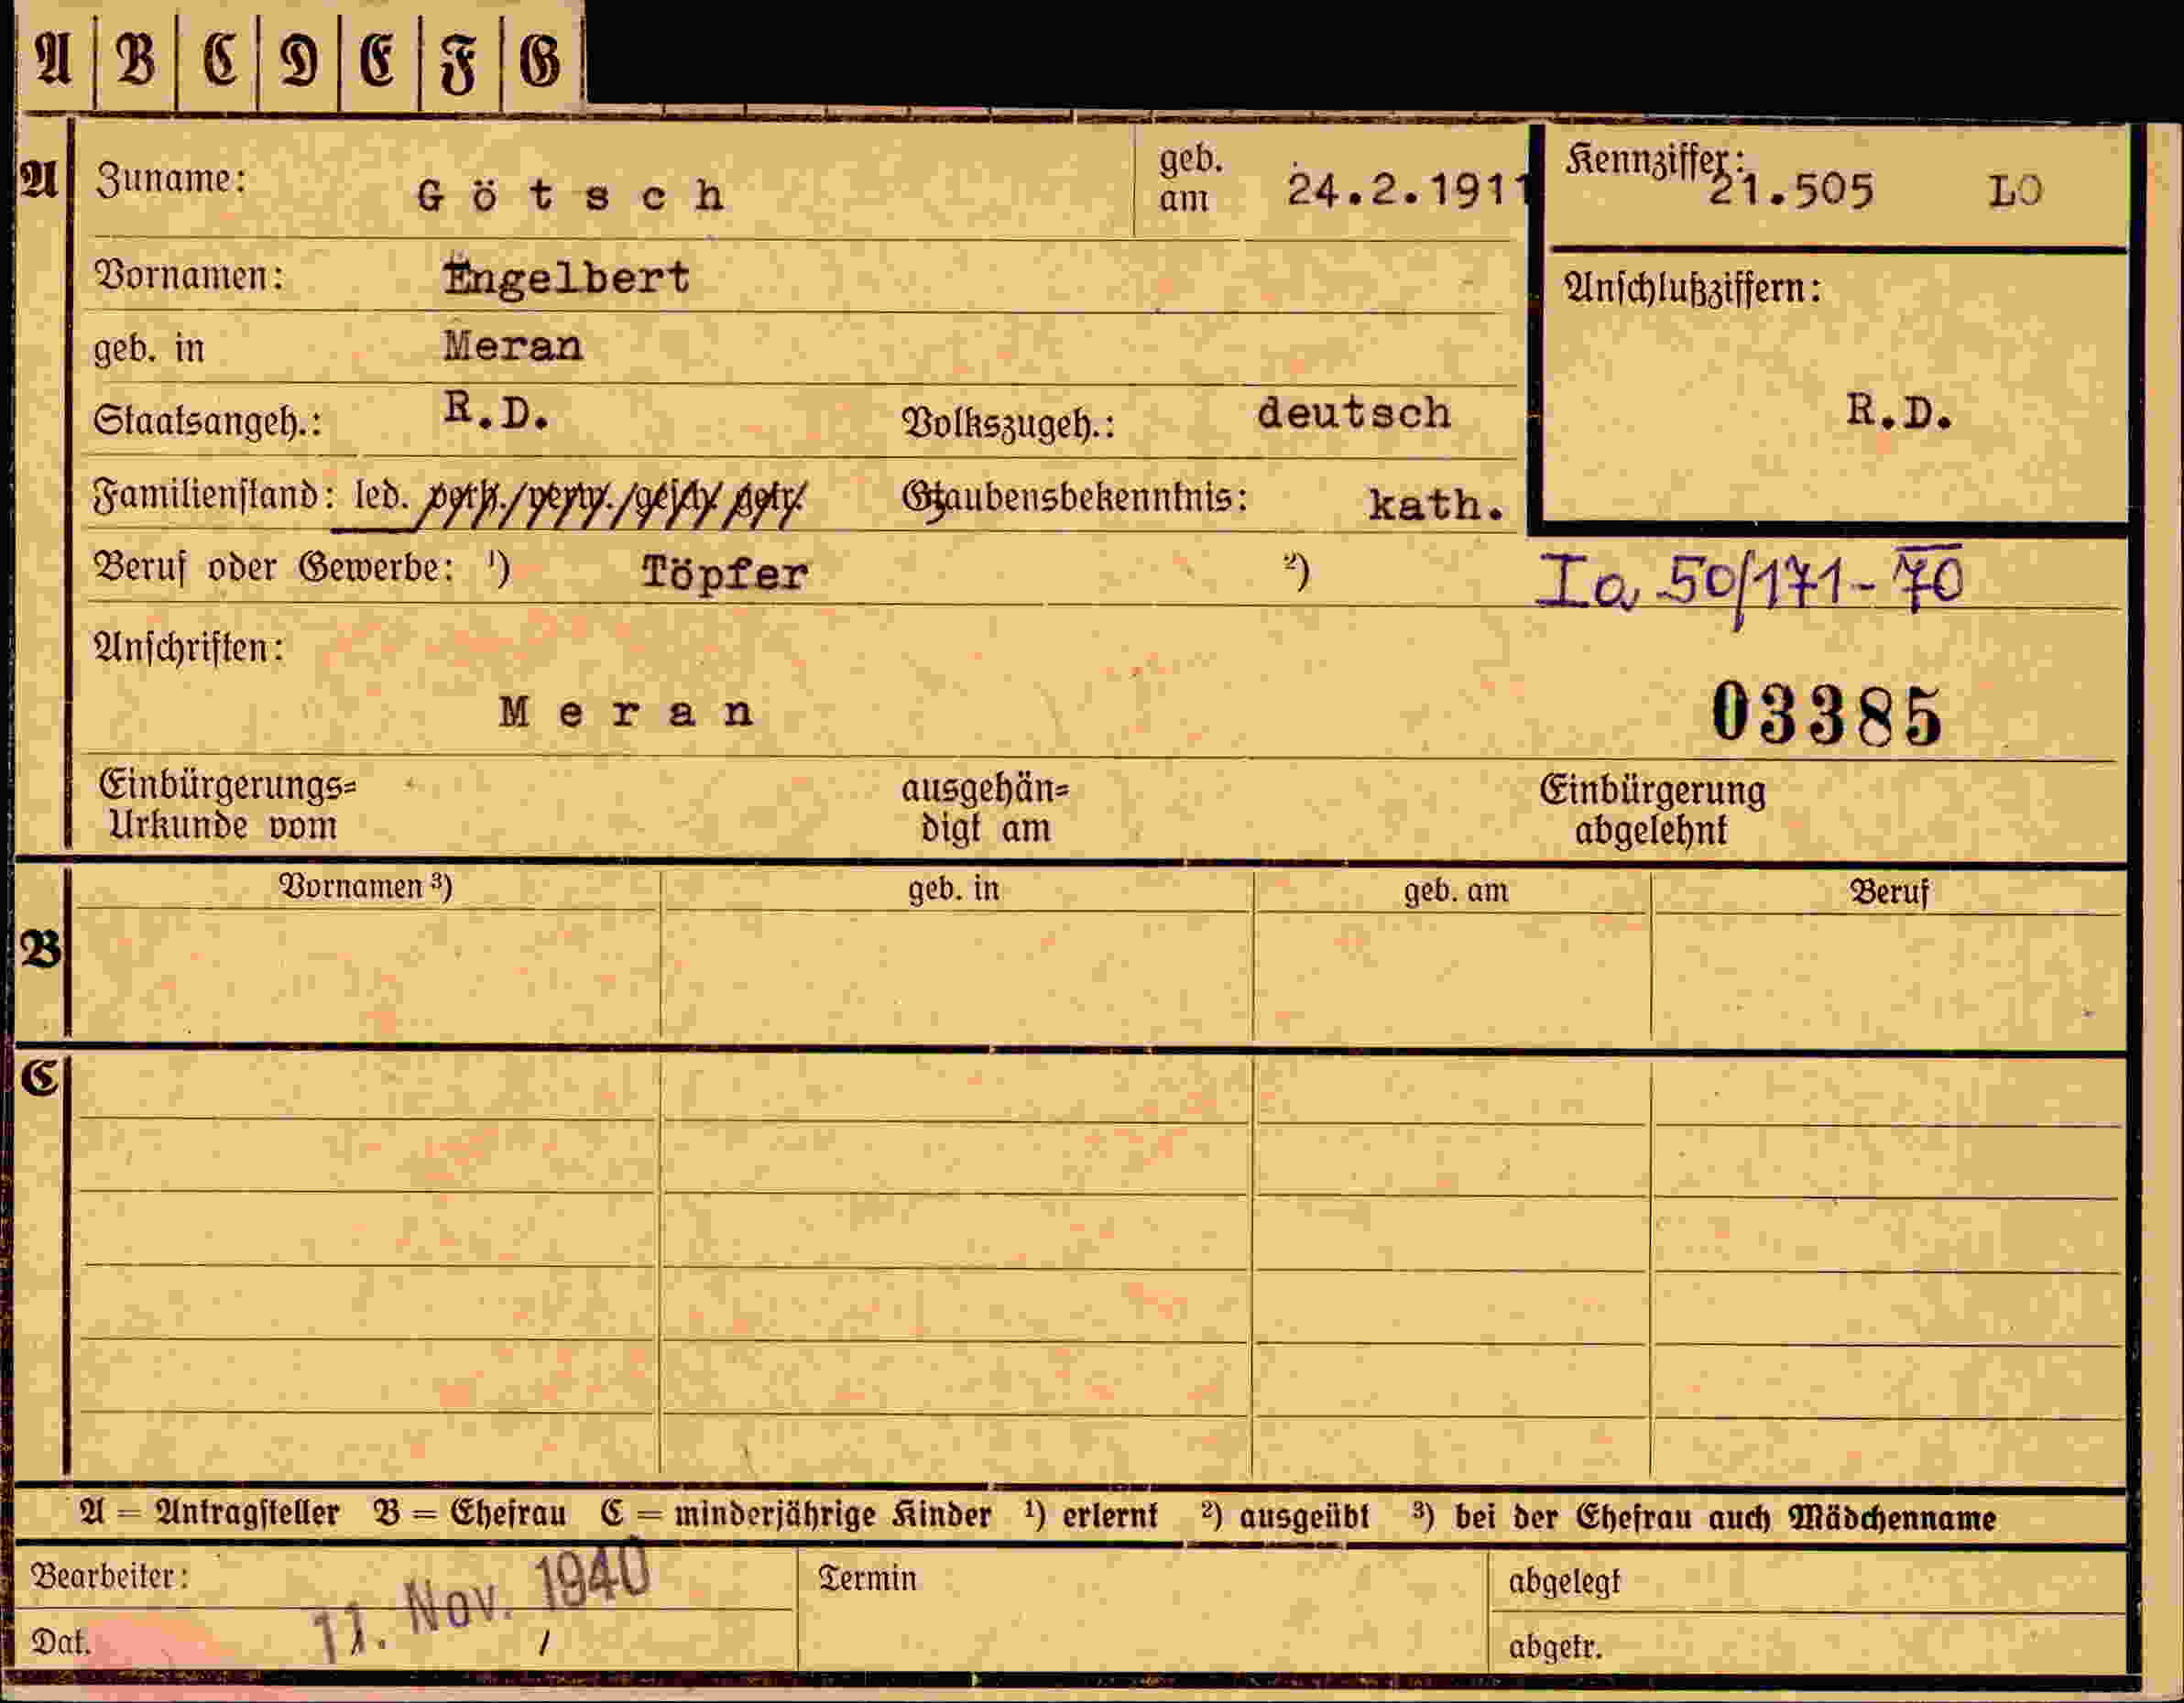 A B C D E F G
A Zuname: Götsch geb. am 24.2.1911 Kennziffer: 21.505 LO
Vornamen: Engelbert Anschlußziffern:
geb. in Meran
Staatsangeh.: R.D. Volkszugeh.: deutsch R.D.
Familienstand: led. verh./verw./gesch. getr. Glaubensbekenntnis: kath.
Beruf oder Gewerbe: ¹) Töpfer ²) Ia 50/171-70
Anschriften:
Meran 03385
Einbürgerungs= ausgehän= Einbürgerung
Urkunde vom digt am abgelehnt
Vornamen ³) geb. in geb. am Beruf
B
C
A = Antragsteller B = Ehefrau C = minderjährige Kinder ¹) erlernt ²) ausgeübt ³) bei der Ehefrau auch Mädchenname
Bearbeiter: 11. Nov. 1940 Termin abgelegt
Dat. abgetr.